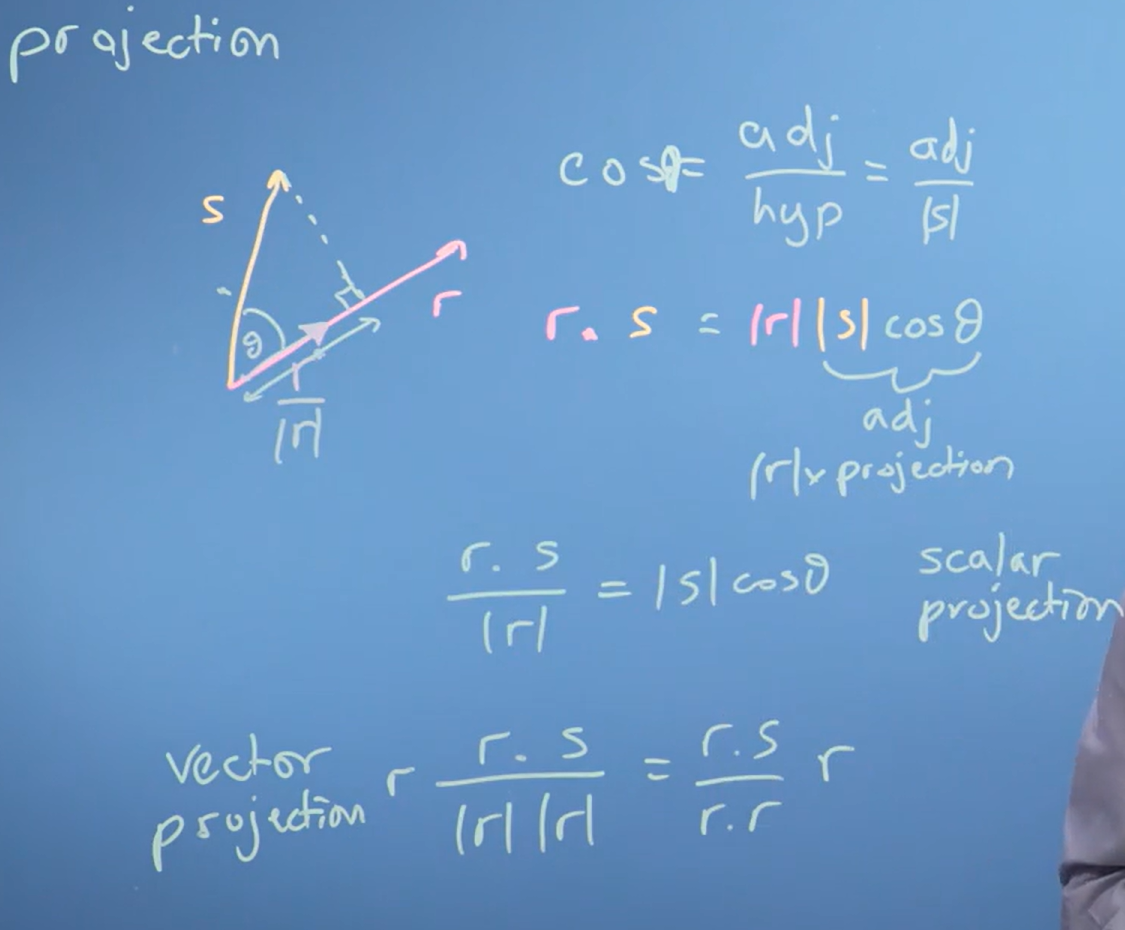 projection
cosθ = adj/hyp = adj/|s|
s
r
θ
r/|r|
r. s = |r||s| cosθ
adj
|r| x projection
r. s/|r| = |s| cosθ
scalar
projection
vector
projection
r r. s/|r||r| = r.s/r.r r